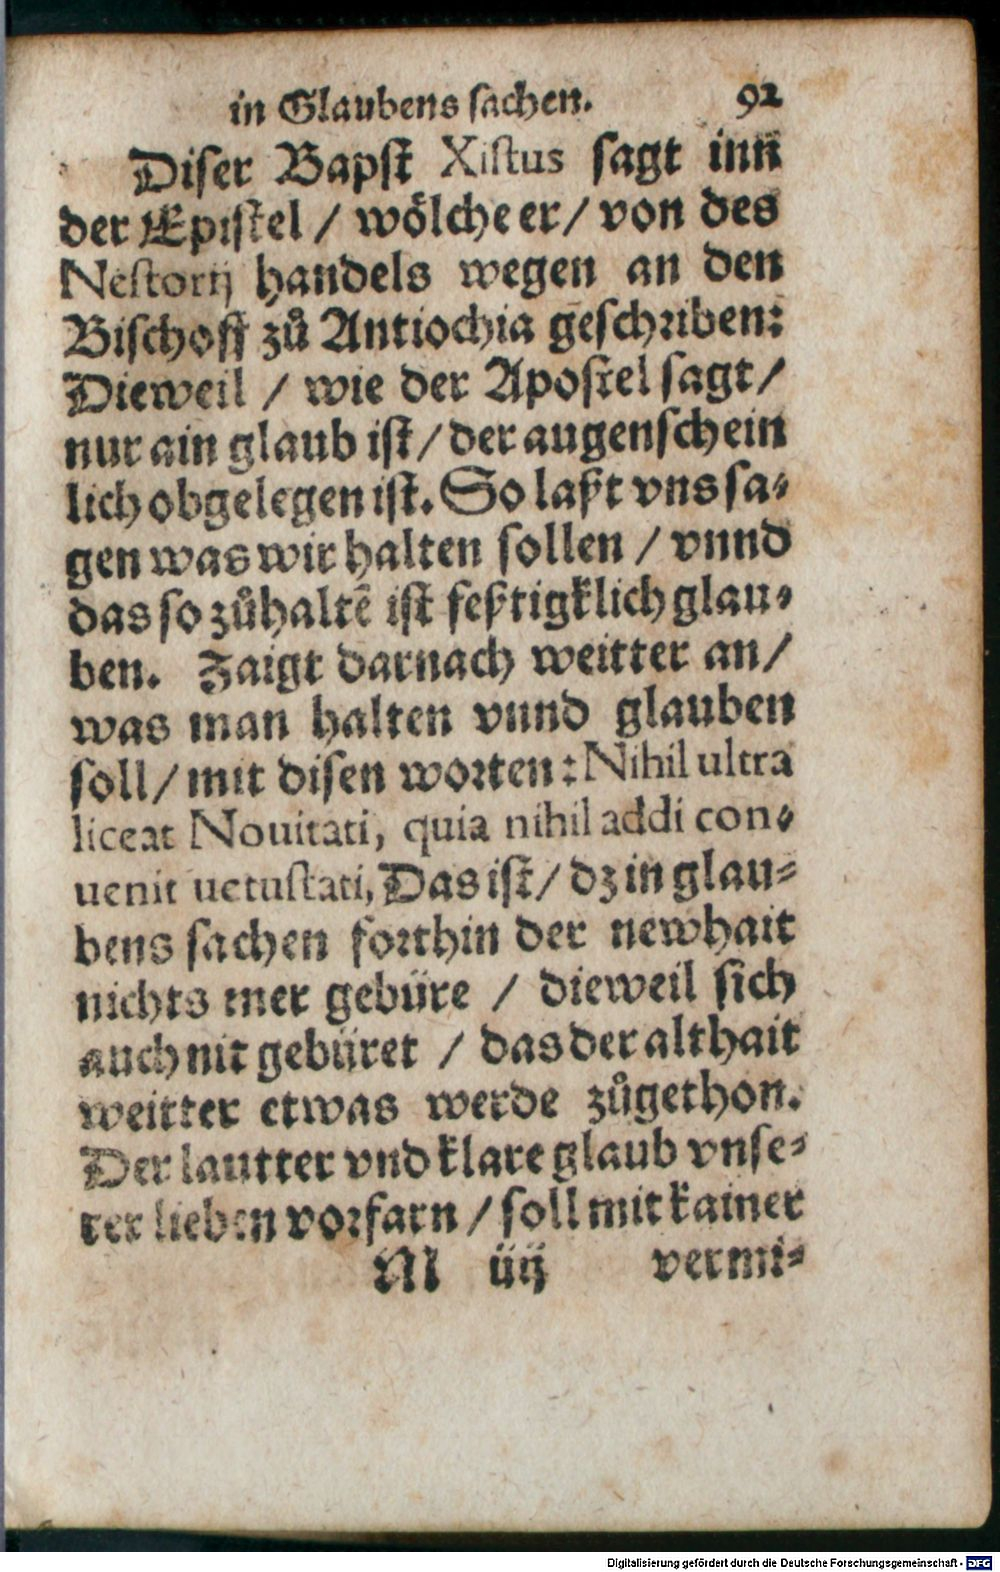 in Glaubens sachen. 92
Diser Bapst Xistus sagt inn
der Epistel / wölche er / von des
Nestorij handels wegen an den
Bischoff zů Antiochia geschriben:
Dieweil / wie der Apostel sagt /
nur ain glaub ist / der augenschein
lich obgelegen ist. So laßt vns sa-
gen was wir halten sollen / vnnd
das so zůhaltē ist feßtigklich glau-
ben. Zaigt darnach weitter an /
was man halten vnnd glauben
soll / mit disen worten: Nihil ultra
liceat Nouitati, quia nihil addi con-
uenit uetustati, Das ist / dz in glau-
bens sachen forthin der newhait
nichts mer gebüre / dieweil sich
auch nit gebüret / das der althait
weitter etwas werde zůgethon.
Der lautter vnd klare glaub vnse-
rer lieben vorfarn / soll mit kainer
M iiij vermi-
Digitalisierung gefördert durch die Deutsche Forschungsgemeinschaft - DFG